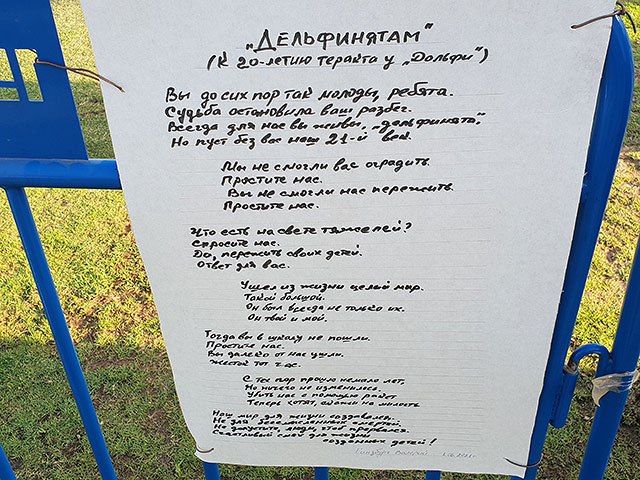 „Дельфинятам"
(К 20-летию теракта у „Дольфи")
Вы до сих пор так молоды, ребята.
Судьба остановила ваш разбег.
Всегда для нас вы живы, „дельфинята",
Но пуст без вас наш 21-й век.
Мы не смогли вас оградить.
Простите нас.
Вы не смогли нас пережить.
Простите нас.
Что есть на свете тяжелей?
Спросите нас.
Да, пережить своих детей.
Ответ для вас.
Ушел из жизни целый мир.
Такой большой.
Он был всегда не только их.
Он твой и мой.
Тогда вы в школу не пошли.
Простите нас.
Вы далеко от нас ушли.
Жесток тот час.
С тех пор прошло немало лет,
Но ничего не изменилось.
Убить нас с помощью ракет
Теперь хотят,
на милость.
Наш мир для жизни создавался.
Не для бессмысленных смертей.
Не допустим, люди, чтоб прервался
Счастливый смех для жизни
созданных детей!